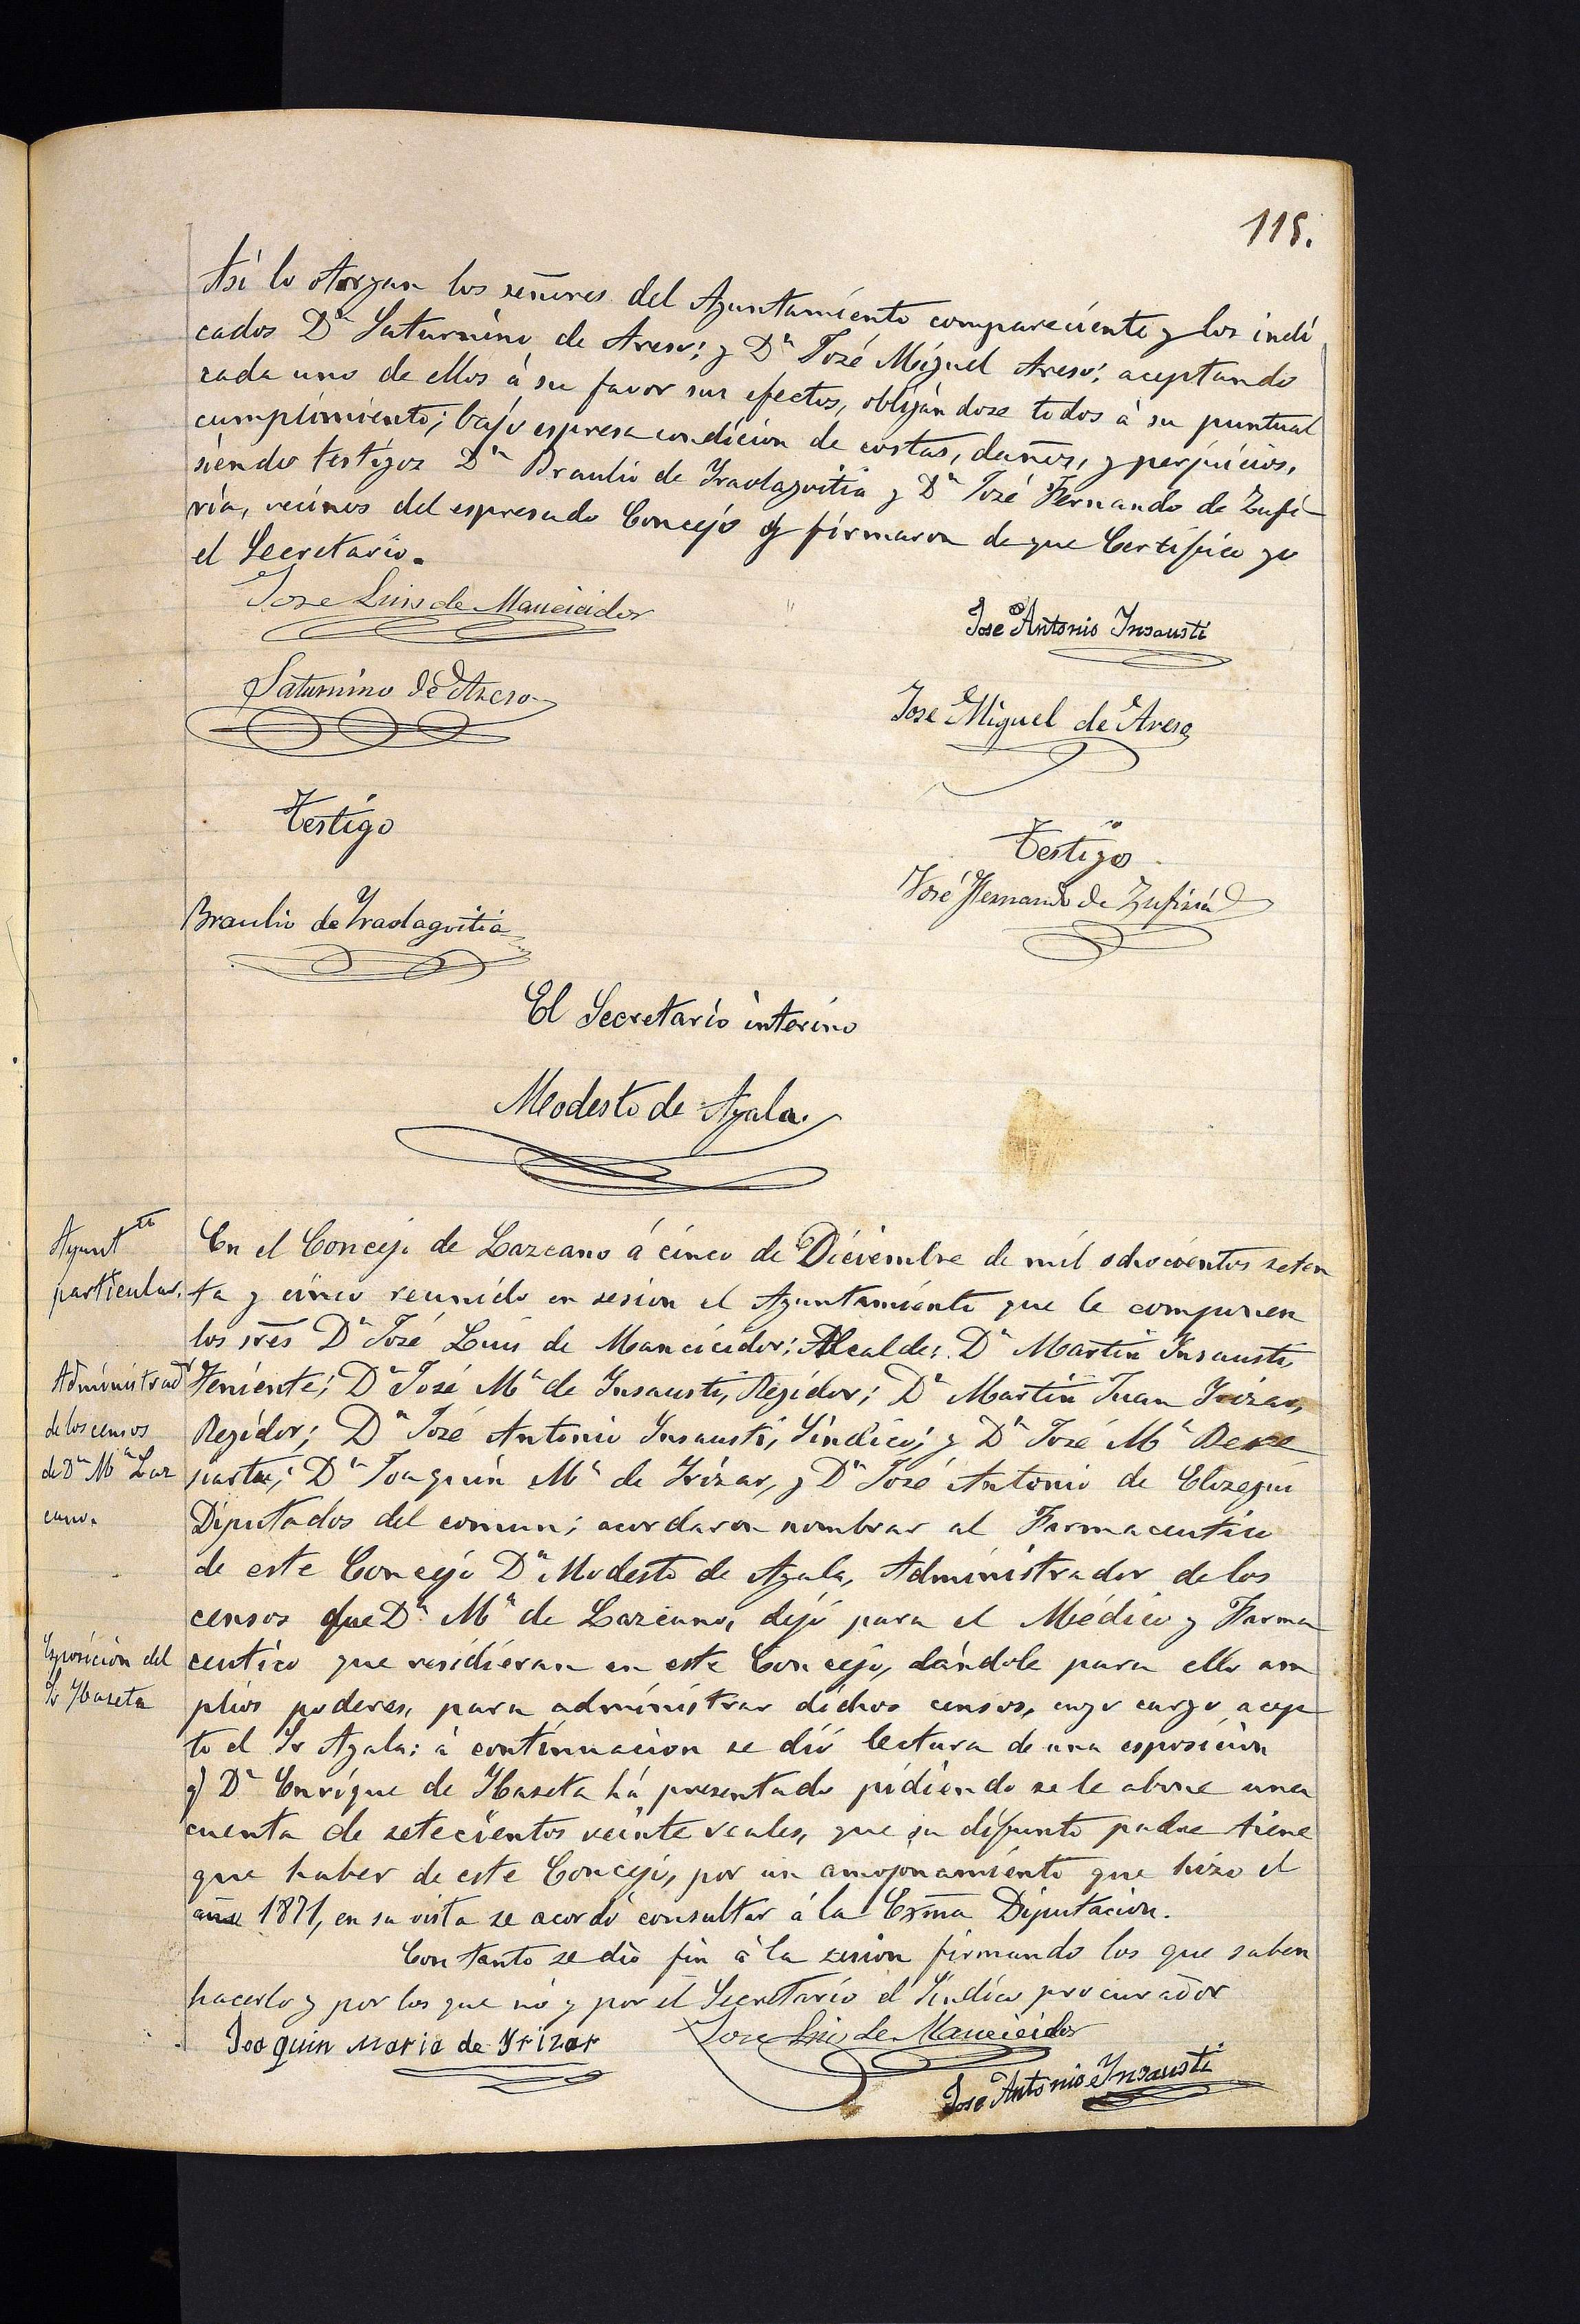 115.
Asi lo otorgan los señores del Ayuntamiento compareciente y los indi
cados Dn Saturnino de Areso; y Dn José Miguel Areso; aceptando
cada uno de ellos á su favor sus efectos, obligándose todos à su puntual
cumplimiento; bajo espresa condicion de costas, daños, y perjuicios,
siendo testigos Dn Braulio de Yraolagoitia y Dn José Fernando de Zufi
ria, vecinos del espresado Concejo y firmaron de que Certifico yo
el Secretario.
Jose Luis de Mancicidor
Jose Antonio Ynsausti
Saturnino de Areso
Jose Miguel de Areso
Testigo
Testigo
José Fernando de Zufiria
Braulio de Yraolagoitia
El Secretario interino
Modesto de Ayala.
Ayuntto
particular.
En el Concejo de Lazcano á cinco de Diciembre de mil ochocientos seten
ta y cinco reunido en sesion el Ayuntamiento que le componen
los sres Dn José Luis de Mancicidor; Alcalde; Dn Martin Ynsausti,
Administradr
de los censos
de Da Ma Laz
cano.
Teniente; Dn José Ma de Ynsausti, Regidor; Dn Martin Juan Yrizar,
Regidor; Dn José Antonio Ynsausti, Síndico; y Dn José Ma
Dn Joaquin Ma de Yrizar, y Dn José Antonio de Elozegui
Diputados del comun; acordaron nombrar al Farmaceutico
de este Concejo Dn Modesto de Ayala, Administrador de los
censos que Da Ma de Lazcano, dejó para el Médico y Farma
Esposicion del
Sr Ybaseta
ceutico que residieran en este Concejo, dándole para ello am
plios poderes, para administrar dichos censos, cuyo cargo acep
to el Sr Ayala; à continuacion se dió lectura de una esposicion
q Dn Enrique de Ybaseta há presentado pidiendo se le abone una
cuenta de setecientos veinte reales, que su difunto padre tiene
que haber de este Concejo, por un amojonamiento que hizo el
año 1871, en su vista se acordó consultar á la Exma Diputacion.
Con tanto se dió fin à la sesion firmando los que saben
hacerlo y por los que nó y por el Secretario el Síndico procurador
Joaquin Maria de Yrizar
Jose Luis de Mancicidor
Jose Antonio Ynsausti